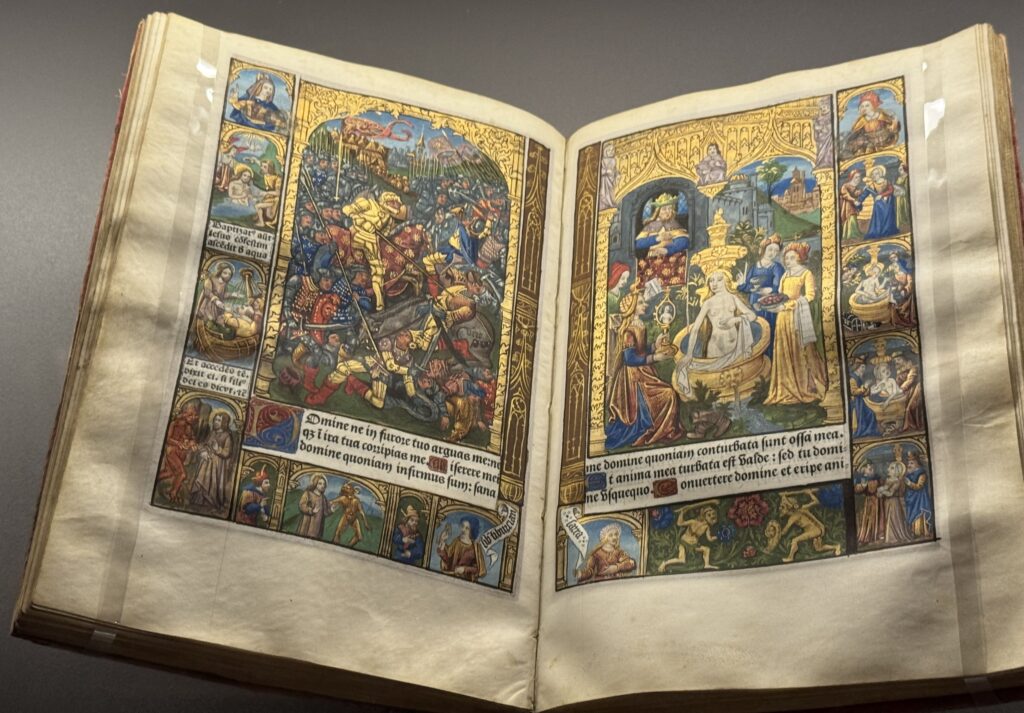 Baptizat' aut
iesus cōfestim
ascēdit d aqua
Et accedēs tē.
dixit ei. si fili'
dei es dic vt. tē
Domine ne in furore tuo arguas me: ne
qz ī ira tua corripias me. Miserere mei
domine quoniam infirmus sum: sana
me domine quoniam conturbata sunt ossa mea.
Et anima mea turbata est valde: sed tu domi-
ne vsquequo. Conuertere domine et eripe ani